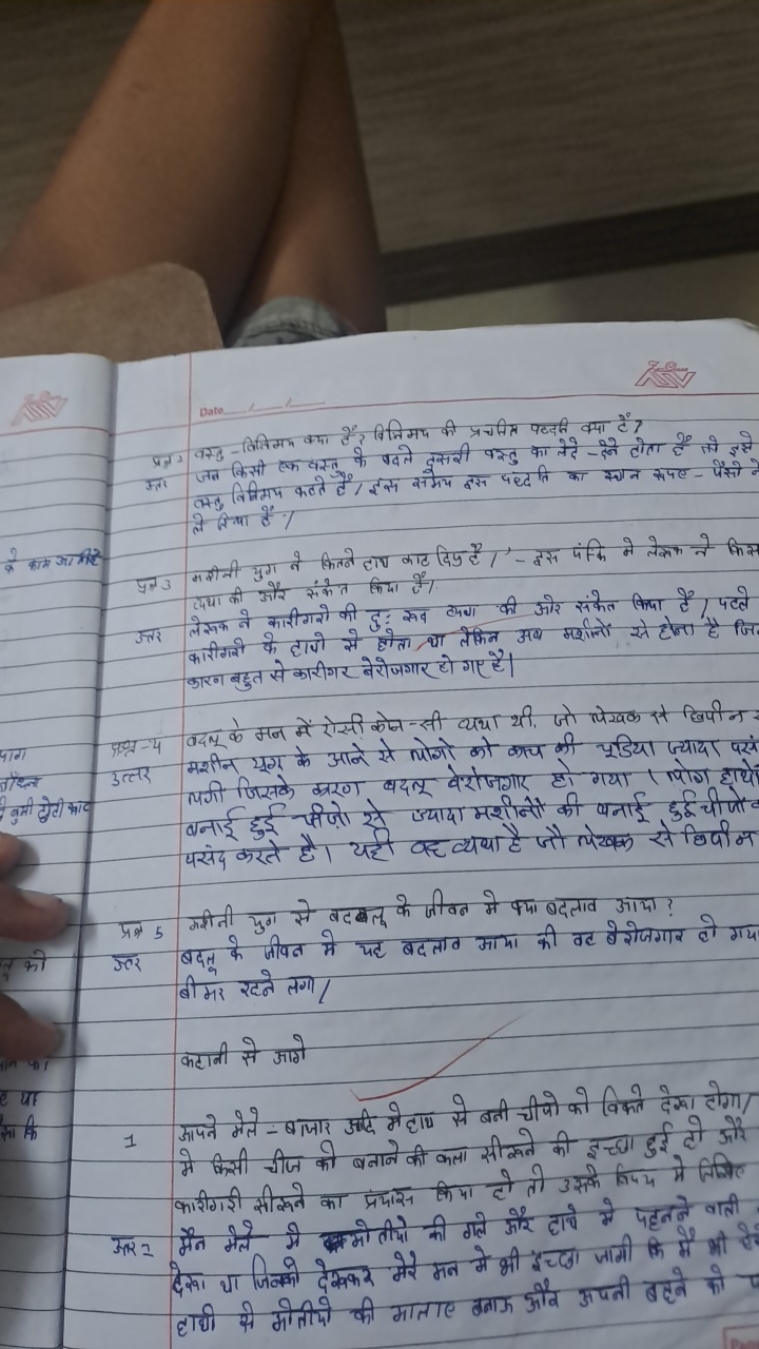 Date
प्रश्न 2 वस्तु - विनिमय क्या है? विनिमय की प्रचलित पद्दती क्या है?
उत्तर जब किसी एक वस्तु के बदले दुसरी वस्तु का लेदे - देने होता है तो इसे
वस्तु विनिमय कहते हैं / इस समय इस पद्दति का स्थान रूपए - पैसो ने
ले लिया है /
के काम आ
प्रश्न 3 मशीनी युग ने कितने हाथ काट दिए है / ' - इस पंक्ति मे लेखक ने किस
व्यथा की और संकेत किया है /
उत्तर लेखक ने कारीगरो की दुः खद व्यथा की ओर संकेत किया है / पहले
कारीगरी के हाथो से होता था लेकिन अब मशीनो से होना है जि
कारण बहुत से कारीगर बेरोजगार हो गए है|
प्रश्न - 4 बदलू के मन में ऐसी कोन - सी व्यथा थी, जो लेखक से छिपी न
उत्तर मशीन युग के आने से लोगो को काच की चूडिया ज्यादा पसं
लगी जिसके कारण बदलू बेरोजगार हो गया । लोग हाथो
बनाई हुई चीज़ो से ज्यादा मशीनो की बनाई हुई चीजो
पसंद करते है । यही वह व्यथा है जो लेखक से छिपी न
प्रश्न 5 मशीनी युग से बदलू के जीवन मे क्या बदलाव आया ?
उत्तर बदलू के जीवन मे यह बदलाव आया की वह बेरोजगार हो गया
बीमर रहने लगा /
कहानी से आगे
1 आपने मेले - बाजार आदि मे हाथ से बनी चीजो को बिकते देखा होगा/
मे किसी चीज को बनाने की कला सीखने की इच्छा हुई हो और
कारीगरी सीखने का प्रयास किया हो तो उसके विषय मे लिखिए
उत्तर = मैन मेले मे मोतीयो की गले और हाथे मे पहनने वाली
देखा था जिनको देखकर मेरे मन मे भी इच्छा जागी कि मै भी
हाथी से मोतीयो की मालाए बनाऊ और अपनी बहने को